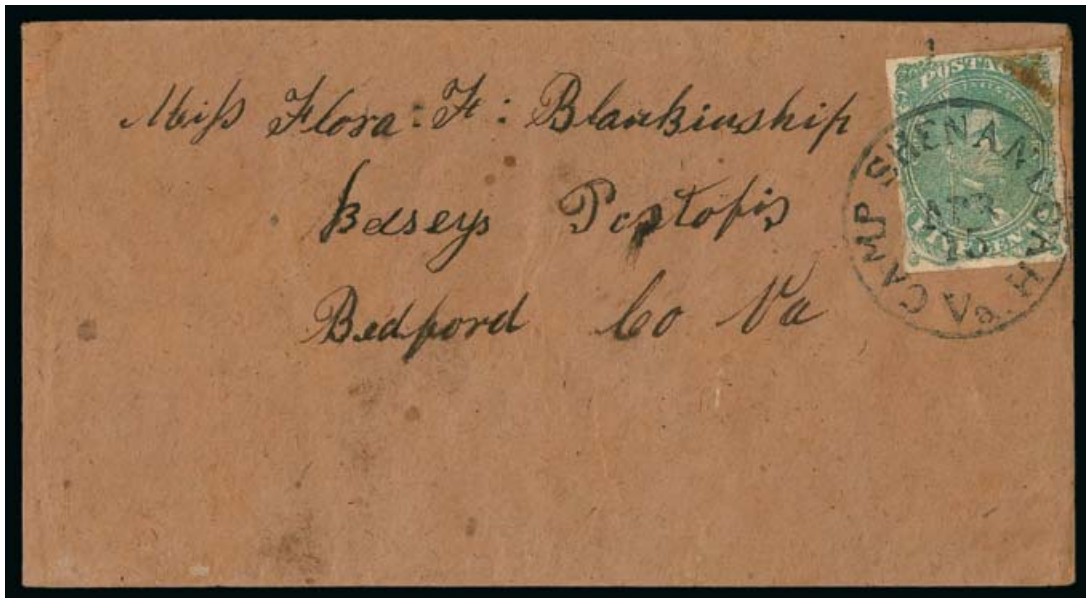 Miss Flora. F: Blankinship
Betseys Postofis
Bedford Co Va
POSTAGE
FIVE CENTS
CAMP SHENANDOAH Va
APR
15